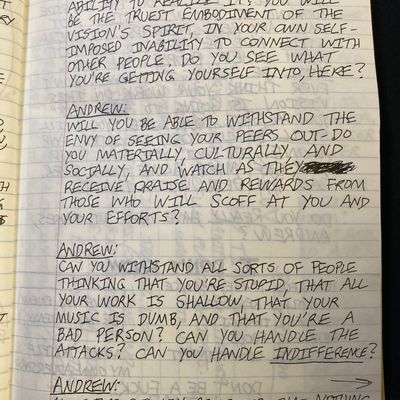 ABILITY TO REALIZE IT? YOU WILL
BE THE TRUEST EMBODIMENT OF THE
VISION'S SPIRIT, IN YOUR OWN SELF-
IMPOSED INABILITY TO CONNECT WITH
OTHER PEOPLE. DO YOU SEE WHAT
YOU'RE GETTING YOURSELF INTO, HERE?
ANDREW:
WILL YOU BE ABLE TO WITHSTAND THE
ENVY OF SEEING YOUR PEERS OUT-DO
YOU MATERIALLY, CULTURALLY, AND
SOCIALLY, AND WATCH AS THEY
RECEIVE PRAISE AND REWARDS FROM
THOSE WHO WILL SCOFF AT YOU AND
YOUR EFFORTS?
ANDREW:
CAN YOU WITHSTAND ALL SORTS OF PEOPLE
THINKING THAT YOU'RE STUPID, THAT ALL
YOUR WORK IS SHALLOW, THAT YOUR
MUSIC IS DUMB, AND THAT YOU'RE A
BAD PERSON? CAN YOU HANDLE THE
ATTACKS? CAN YOU HANDLE INDIFFERENCE?
ANDREW: →